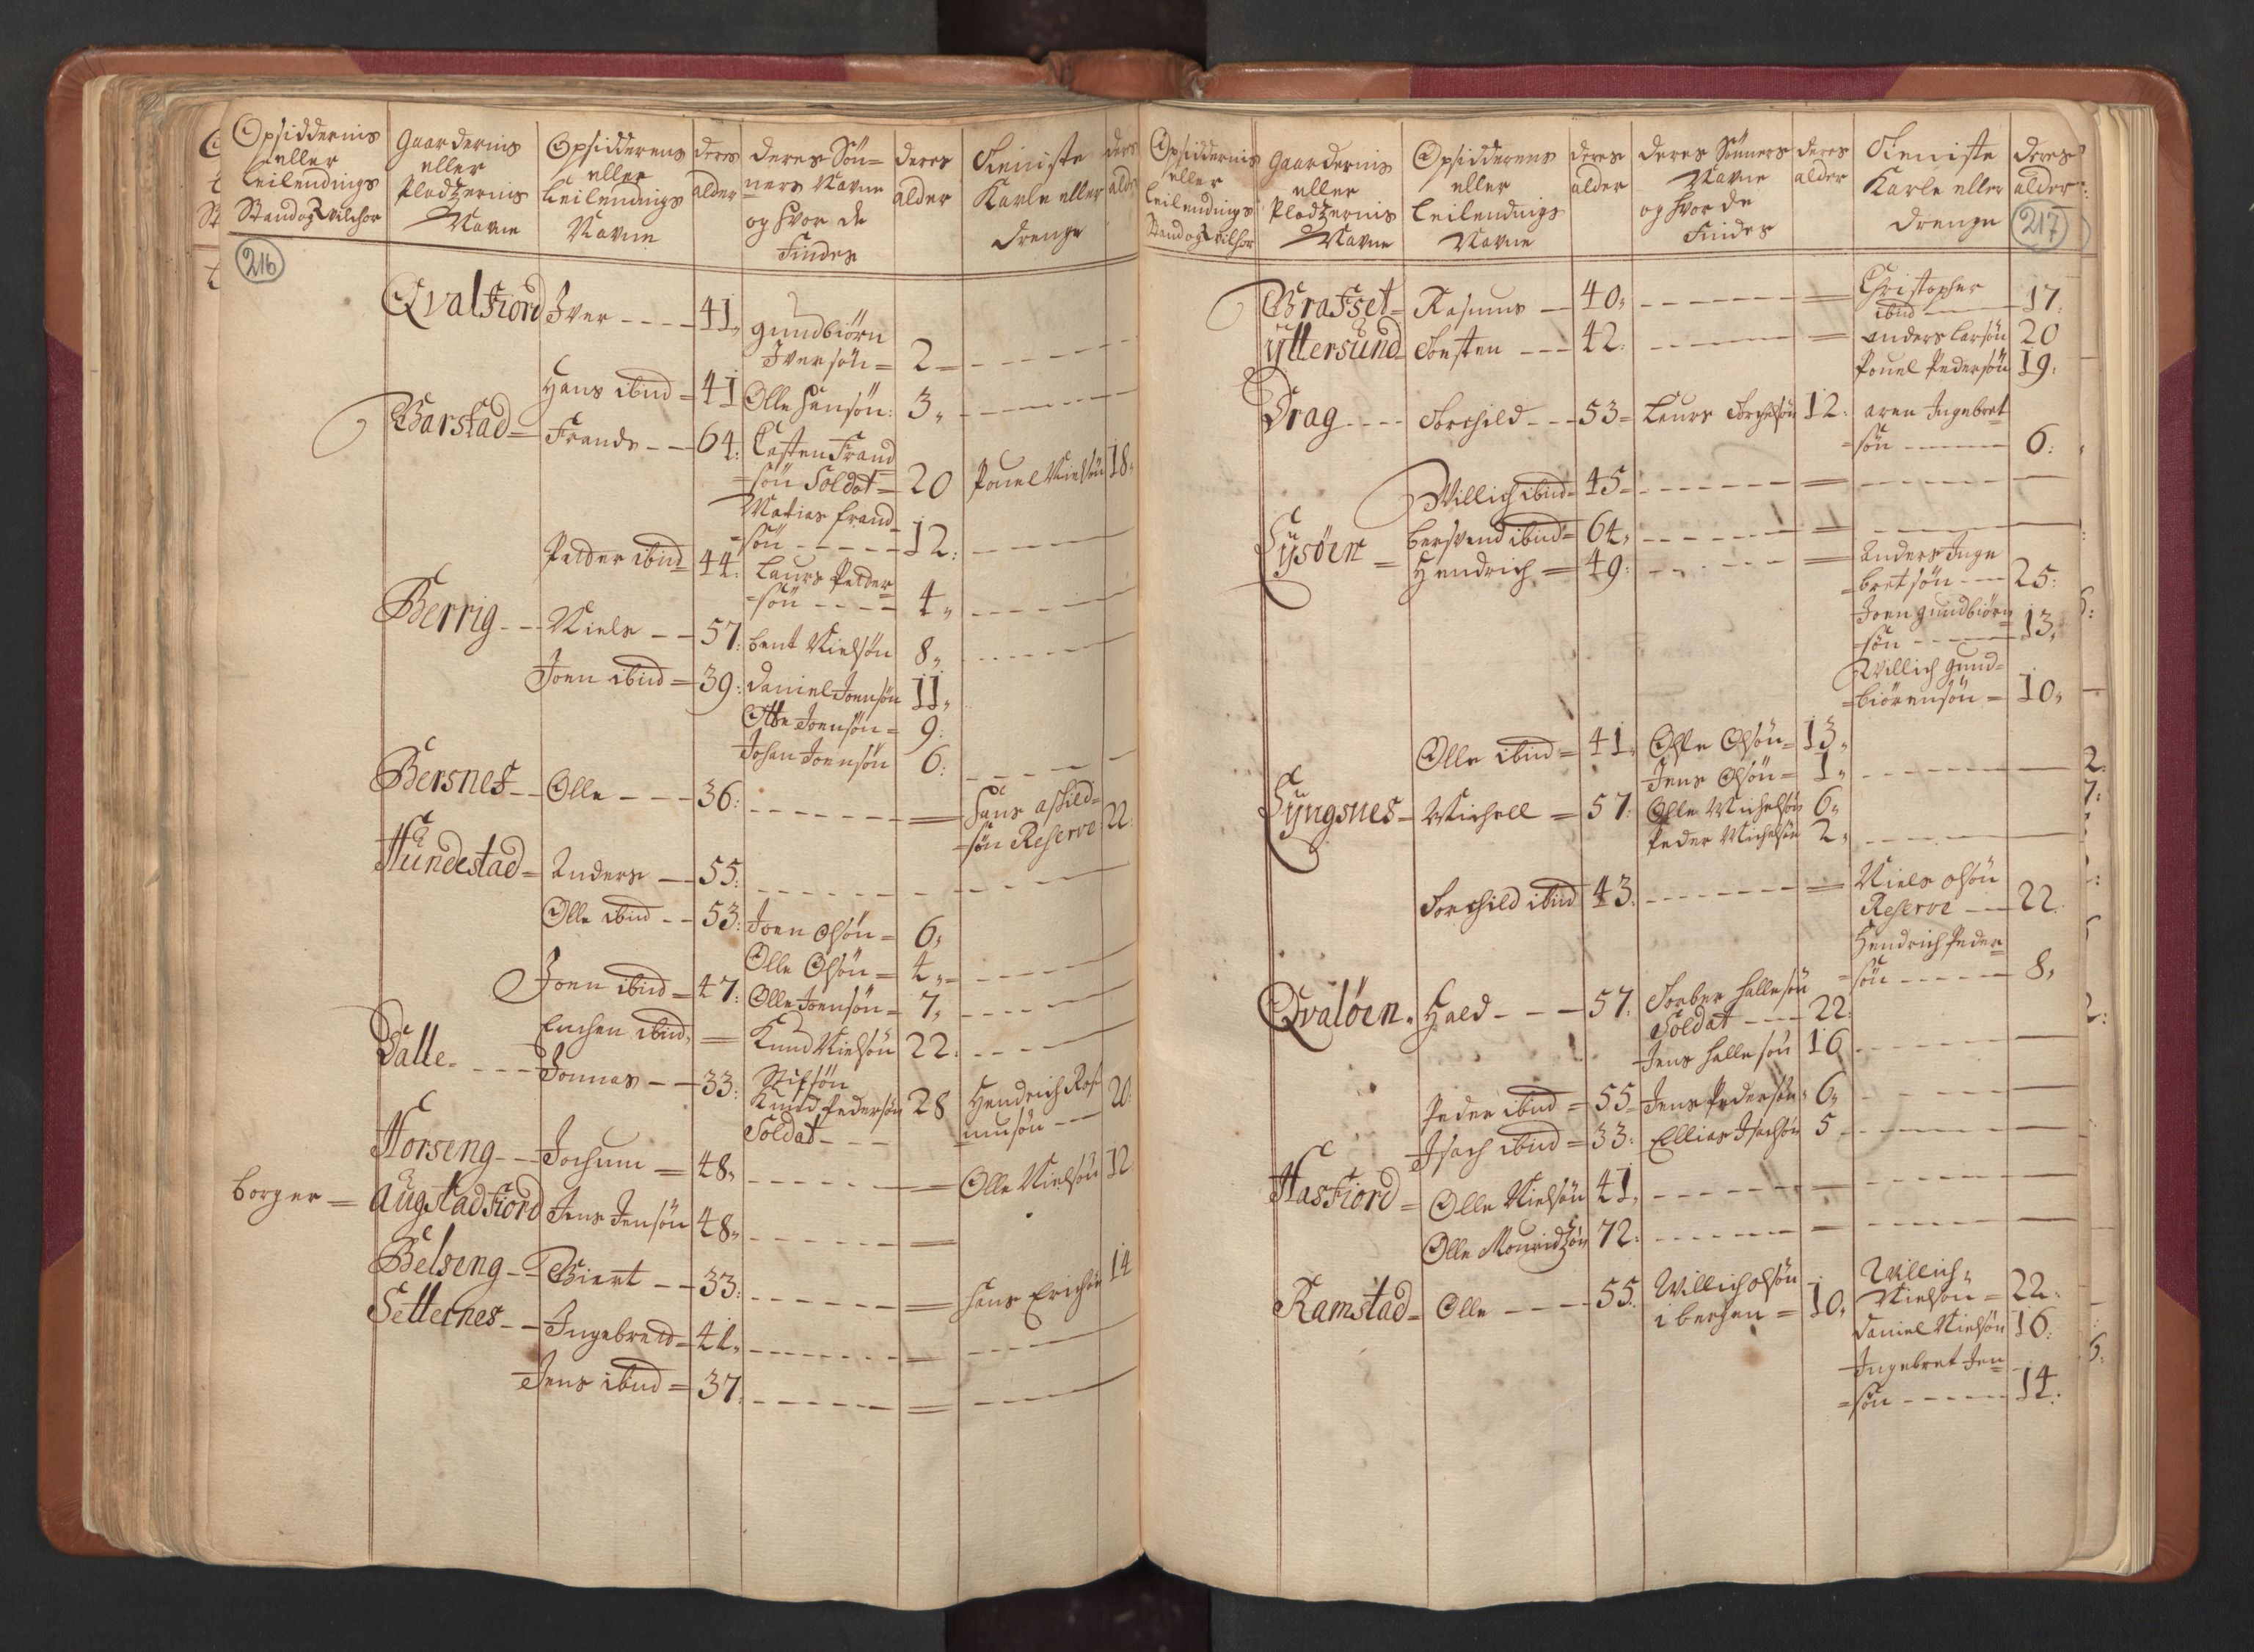 Opsiddernis eller Leilendings Stand og vilchor
Gaardernis eller Pladzernis Navne
Opsidderens eller Leilendings Navne
deres alder
deres Sønners Navne og hvor de Findes
deres alder
Tieniste Karle eller drenge
deres alder
216
QvalFiord Iver - - - - 41, gundbiørn
Iversøn = 2 = - - - - -
Hans ibid = 41 Olle Hansøn: 3, - - - - -
Barstad = Frands - - 64: Casten Frand
=søn Soldat = 20 Pouel Nielsøn 18,
Matias frand
=søn - - - - - 12: - - - -
Peder ibid = 44: Laurs Peder
=søn - - - - 4, - - - -
Berrig - - Niels - - 57: bent Nielsøn 8, - - - - -
Joen ibid = 39: Daniel Joensøn 11,
Otte Joensøn = 9:
Johan Joensøn 6: - - - - -
Bersnes - - Olle - - - 36: - - - - - - = Hans
=søn Reserve 22:
Hundestad = Anders - - 55: - - - - - - - - - -
Olle ibid - - 53: Joen Olsøn = 6,
Olle Olsøn = 4, = - - - -
Joen ibid = 47: Olle Joensøn = 7, - - - -
Enchen ibid, = Knud Nielsøn 22: - - - -
Dalle - - - - Jonnas - - 33: Stifsøn
Knud Pedersøn 28 Hendrich Ras
Soldat - - - musøn - - 20:
Horseng - - Jochum = 48, - - - - - - = Olle Nielsøn 12
borger = AugstadFiord Jens Jensøn 48, - - - - - - =
Belseng - - Biert - - 33: - - - - - - = Hans Erichsøn 14
Setternes - - Ingebret = 42, - - - - - - = - - - - -
Jens ibid = 37 - - - - - - = - - - - -
Opsiddernis eller Leilendings Stand og vilchor
Gaardernis eller Pladzernis Navne
Opsidderens eller Leilendings Navne
deres alder
deres Sønners Navne og hvor de Findes
deres alder
Tieniste Karle eller drenge
deres alder
217
Grafset = Rasmus - 40, - - - - - - = Christopher
ibid - - 17:
Yttersund Torsten - - - 42: - - - - - - = anders larsøn 20
Pouel Pedersøn 19:
Drag - - - - Torchild - - - 53 = Laurs Torchelsøn 12: aren Ingebret
=søn - - - - 6:
Willich ibid = 45 = - - - - - - = - - - - - -
bersvend ibid = 64, - - - - - - = - - - - - -
Lysøen = Hendrich = 49: - - - - - = Anders Inge
=bretsøn - - - 25:
Joen gundbiørn
=søn - - - - 13,
Willich gund=
=biørensøn = 10,
Olle ibid = 41, Olle Olsøn = 13,
Jens Olsøn = 1, - - - - - -
Lyngsnes = Michell = 57: Olle Michelsøn 6,
Peder Michelsøn 2, - - - - - -
Torchild ibid 43: - - - - - - = Niels Olsøn
Reserve - - 22.
Hendrich Peder
=søn - - - - - 8,
Qvaløen. Hald - - - 57: Torber hallesøn
Soldat - - - 22:
Jens hallesøn 16 - - - - -
Peder ibid = 55 = Jens Pedersøn, 6, - - - - -
Isach ibid = 33: Ellias Isachsøn 5 - - - - - -
HasFiord = Olle Nielsøn 41, - - - - - - = - - - - - -
Olle Mouridzøn 72: - - - - - - = - - - - - -
Ramstad = Olle - - - - 55: Willich Olsøn
i bergen = 10, Willich
Nielsøn = 22:
Daniel Nielsøn 16:
Ingebret Jen=
=søn - - - - - 14: